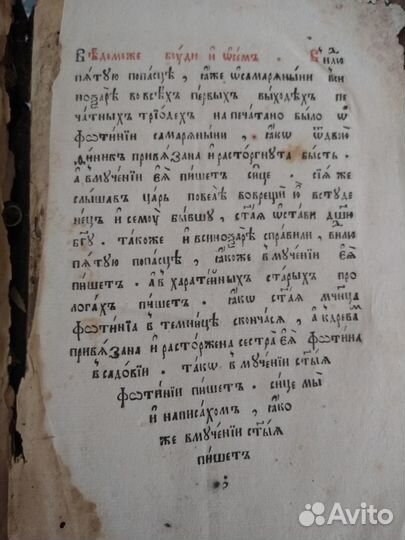 Вѣ́доможе бꙋ́ди и҆ ѡ҆се́мъ . Внл҃ю
пѧ́тꙋю попа́сцѣ , ꙗ҆́же ѡ҆самарѧны́ни вси
ноѯа́рѣ вовсѣ́хъ пе́рвыхъ вы́ходѣхъ пе
ча́тныхъ трїѡ́дехъ напеча́тано бы́ло ѡ҆
фѡти́нїи самарѧны́ни . ꙗ҆́кѡ
привѧ́зана и҆ расто́ргнꙋта бы́сть .
а҆ вмꙋче́нїи є҆ѧ̀ пи́шетъ си́це . сїѧ̑ же
слы́шавъ ца́рь повелѣ̀ вове́рщи ю҆̀ встꙋде
не́цъ и҆ семꙋ̀ бы́вшꙋ , ст҃а́ѧ ѡ҆ста́ви дш҃ꙋ
бг҃ꙋ . та́коже и҆ всиноѯа́рѣ спра́вили , внл҃ю
пѧ́тꙋю попа́сцѣ , ꙗ҆́коже вмꙋче́нїи є҆ѧ̀
пи́шетъ . а҆ вхарате́йныхъ ста́рыхъ про
ло́гахъ пи́шетъ . ꙗ҆́кѡ ст҃а́ѧ мч҃ница
фѡти́нїа втемни́це сконча́сѧ , а҆ кдрева̀
привѧ́зана и҆ расто́ржена сестра̀ є҆ѧ̀ фѡти́на
всадо́вїи . та́кѡ вмꙋче́нїи ст҃ы́ѧ
фѡти́нїи пи́шетъ . си́це мы̀
и҆ написа́хомъ , ꙗ҆́ко
же вмꙋче́нїи ст҃ы́ѧ
пи́шетъ
Avito